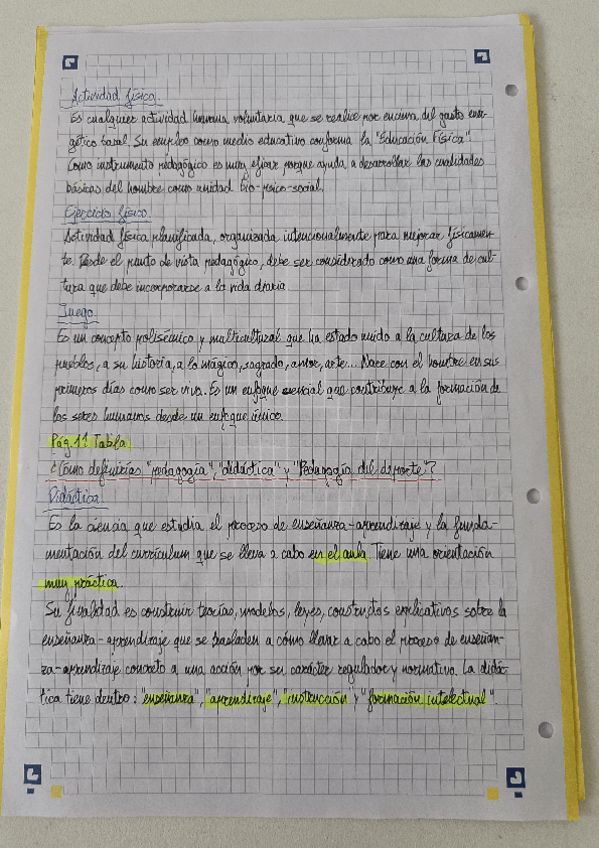 Actividad física.
Es cualquier actividad humana voluntaria, que se realice por encima del gasto ener-
gético basal. Su empleo como medio educativo conforma la "Educación Física".
Como instrumento pedagógico es muy eficaz porque ayuda a desarrollar las cualidades
básicas del hombre como unidad bio-psico-social.
Ejercicio físico.
Actividad física planificada, organizada intencionalmente para mejorar físicamen-
te. Desde el punto de vista pedagógico, debe ser considerado como una forma de cul-
tura que debe incorporarse a la vida diaria
Juego.
Es un concepto polisémico y multicultural que ha estado unido a la cultura de los
pueblos, a su historia, a lo mágico, sagrado, amor, arte... Nace con el hombre en sus
primeros días como ser vivo. Es un enfoque esencial que contribuye a la formación de
los seres humanos desde un enfoque único.
Pág. 11 Tabla
¿Cómo definirías "pedagogía", "didáctica" y "Pedagogía del deporte"?
Didáctica
Es la ciencia que estudia el proceso de enseñanza-aprendizaje y la funda-
mentación del curriculum que se lleva a cabo en el aula. Tiene una orientación
muy práctica.
Su finalidad es construir teorías, modelos, leyes, constructos explicativos sobre la
enseñanza-aprendizaje que se trasladen a cómo llevar a cabo el proceso de enseñan-
za-aprendizaje concreto a una acción por su carácter regulador y normativo. La didác-
tica tiene dentro: "enseñanza", "aprendizaje", "instrucción" y "formación intelectual".